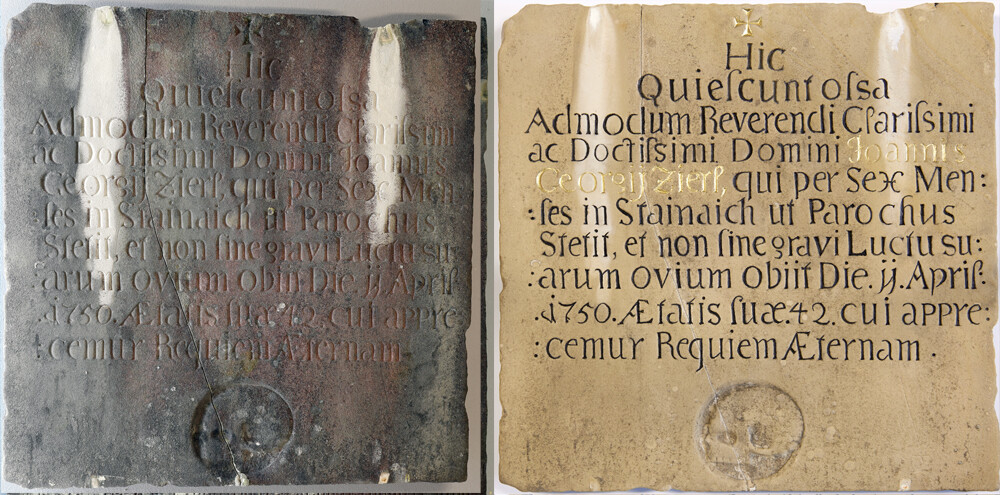 Hic
Quieſcunt oſsa
Admodum Reverendi Clariſsimi
ac Doctiſsimi Domini Joannis
Georgij Zierl, qui per Sex Men:
:ſes in Stainaich ut Parochus
Stetit, et non ſine gravi Luctu su:
:arum ovium obiit Die. jj. April.
.1750. Ætatis ſuæ.42. cui appre:
:cemur Requiem Æternam
Hic
Quieſcunt oſsa
Admodum Reverendi Clariſsimi
ac Doctiſsimi Domini Joannis
Georgij Zierl, qui per Sex Men:
:ſes in Stainaich ut Parochus
Stetit, et non ſine gravi Luctu su:
:arum ovium obiit Die. jj. April.
.1750. Ætatis ſuæ.42. cui appre:
:cemur Requiem Æternam .